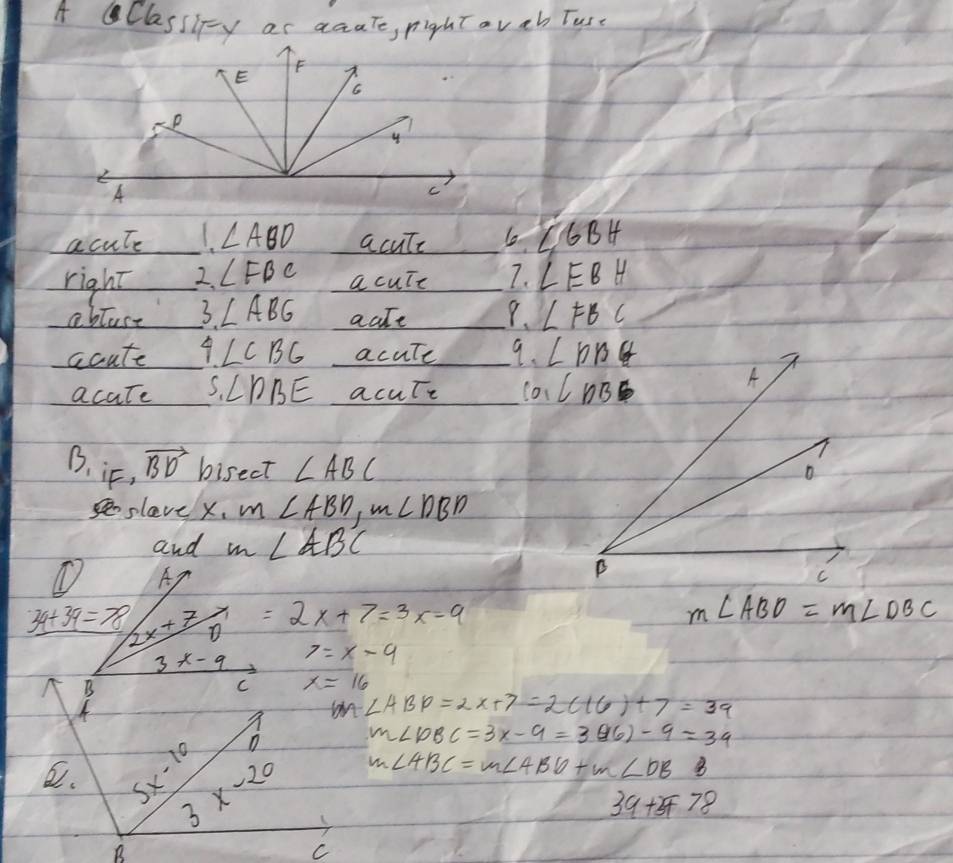 A Classify as acute, right or abtuse
F
E
G
D
H
A C
acute 1. ∠ABD acute 6. ∠GBH
right 2. ∠FBC acute 7. ∠EBH
abtuse 3. ∠ABG acte 8. ∠FBC
acute 4. ∠CBG acute 9. ∠DBG
acute 5. ∠DBE acute 10. ∠DBG
A
D
B C
B. iF, BD bisect ∠ABC
slove x. m ∠ABD, m∠DBD
and m ∠ABC
m∠ABD = m∠DBC
1
A
39+39=78 2x+7 D = 2x+7=3x-9
3x-9 7=x-9
B C x=16
m∠ABD=2x+7=2(16)+7=39
m∠DBC=3x-9=3(16)-9=39
m∠ABC=m∠ABD+m∠DB
78
A
D
2. 5x-10
3x-20
B C